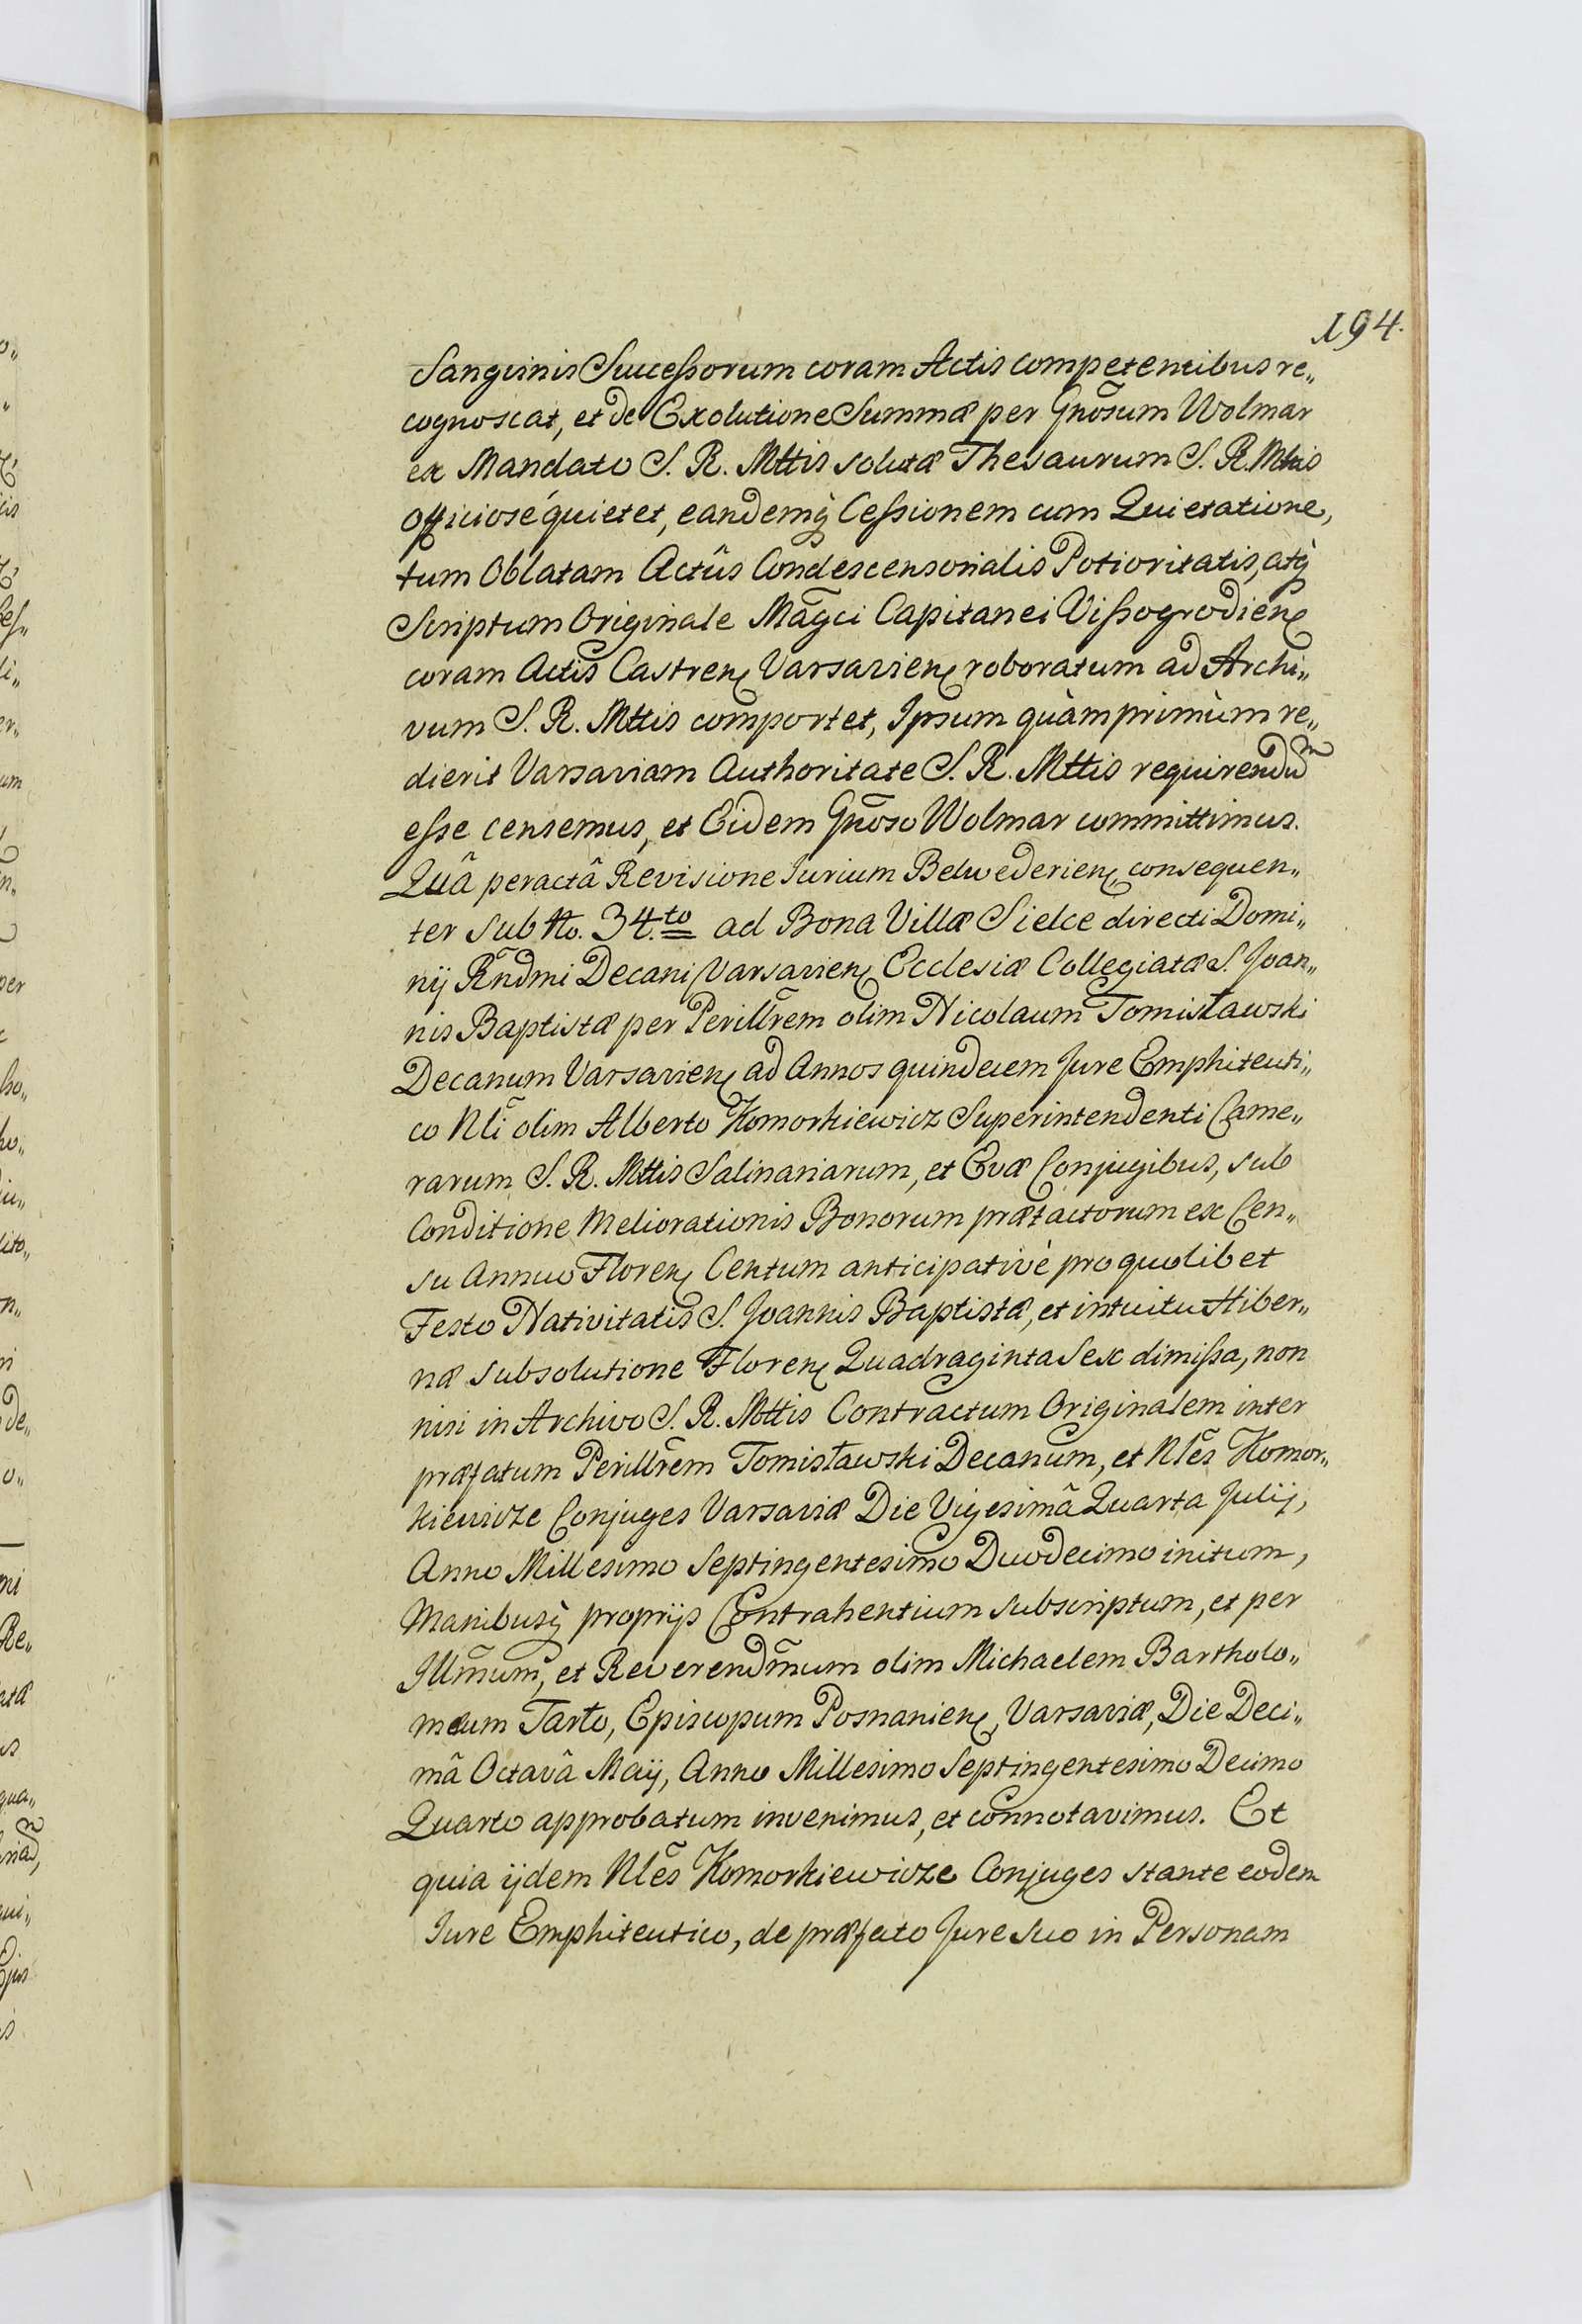 194.
Sanguinis Successorum coram Actis competentibus re„
cognoscat, et de Exolutione Summæ per Gñosum Wolmar
ex Mandato S. R. Mttis solutæ Thesaurum S. R. Mttis
officiosè quietet, eandemq̀ Cessionem cum Quietatione,
tum Oblatam Actûs Condescensorialis Potioritatis, atq̀
Scriptum Originale Mãgci Capitanei Vissogrodien̨
coram Actis Castren̨ Varsavien̨ roboratum ad Archi„
vum S. R. Mttis comportet, Ipsum quàmprimùm re„
dierit Varsaviam Authoritate S. R. Mttis requirendũ
esse censemus, et Eidem Gñoso Wolmar committimus.
Quâ peractâ Revisione Jurium Belwederien̨, consequen„
ter sub No. 34.to ad Bona Villæ Sielce directi Domi„
nij Rñdmi Decani Varsavien̨ Ecclesiæ Collegiatæ S. Joan„
nis Baptistæ per Perillr̃em olim Nicolaum Tomisławski
Decanum Varsavien̨ ad Annos quindecem Jure Emphiteuti„
co Nl̃i olim Alberto Komorkiewicz Superintendenti Came„
rarum S. R. Mttis Salinariarum, et Evæ Conjugibus, sub
Conditione Meliorationis Bonorum præfactorum ex Cen„
su Annuo Floren̨ Centum anticipativè pro quolibet
Festo Nativitatis S. Joannis Baptistæ, et intuitu Hiber„
næ sub solutione Floren̨ Quadraginta Sex dimissa, non
nisi in Archivo S. R. Mttis Contractum Originalem inter
præfatum Perillr̃em Tomisławski Decanum, et Nl̃es Komor„
kiewicze Conjuges Varsaviæ Die Vigesimâ Quarta Julij,
Anno Millesimo Septingentesimo Duodecimo initum,
Manibusq̀ proprijs Contrahentium subscriptum, et per
Illm̃um, et Reverendm̃um olim Michaelem Bartholo„
mæum Tarło, Episcopum Posnanien̨, Varsaviæ, Die Deci„
mâ Octavâ Maij, Anno Millesimo Septingentesimo Decimo
Quarto approbatum invenimus, et connotavimus. Et
quia ijdem Nl̃es Komorkiewicze Conjuges stante eodem
Jure Emphiteutico, de præfato Jure suo in Personam